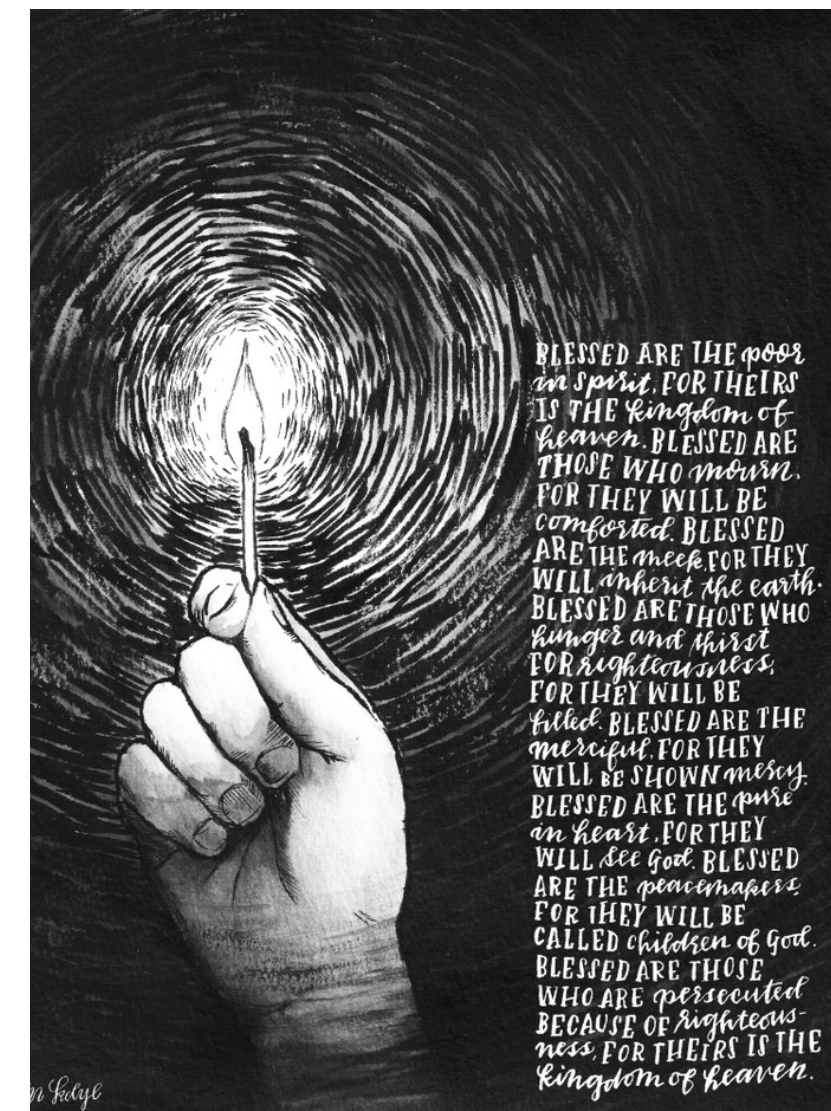 BLESSED ARE THE poor
in spirit, FOR THEIRS
IS THE kingdom of
heaven. BLESSED ARE
THOSE WHO mourn,
FOR THEY WILL BE
comforted. BLESSED
ARE THE meek, FOR THEY
WILL inherit the earth.
BLESSED ARE THOSE WHO
hunger and thirst
FOR righteousness,
FOR THEY WILL BE
filled. BLESSED ARE THE
merciful, FOR THEY
WILL BE SHOWN mercy.
BLESSED ARE THE pure
in heart, FOR THEY
WILL see God. BLESSED
ARE THE peacemakers,
FOR THEY WILL BE
CALLED children of God.
BLESSED ARE THOSE
WHO ARE persecuted
BECAUSE OF righteous-
ness, FOR THEIRS IS THE
kingdom of heaven.